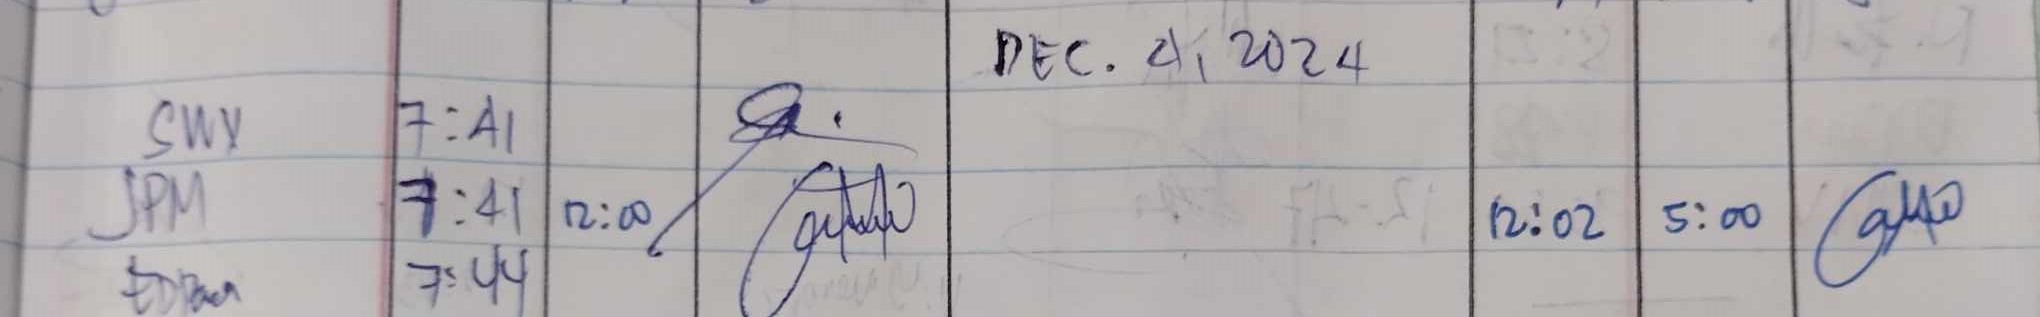 DEC. 4, 2024
SWY 7:41
JPM 7:41 12:00 12:02 5:00
7:44